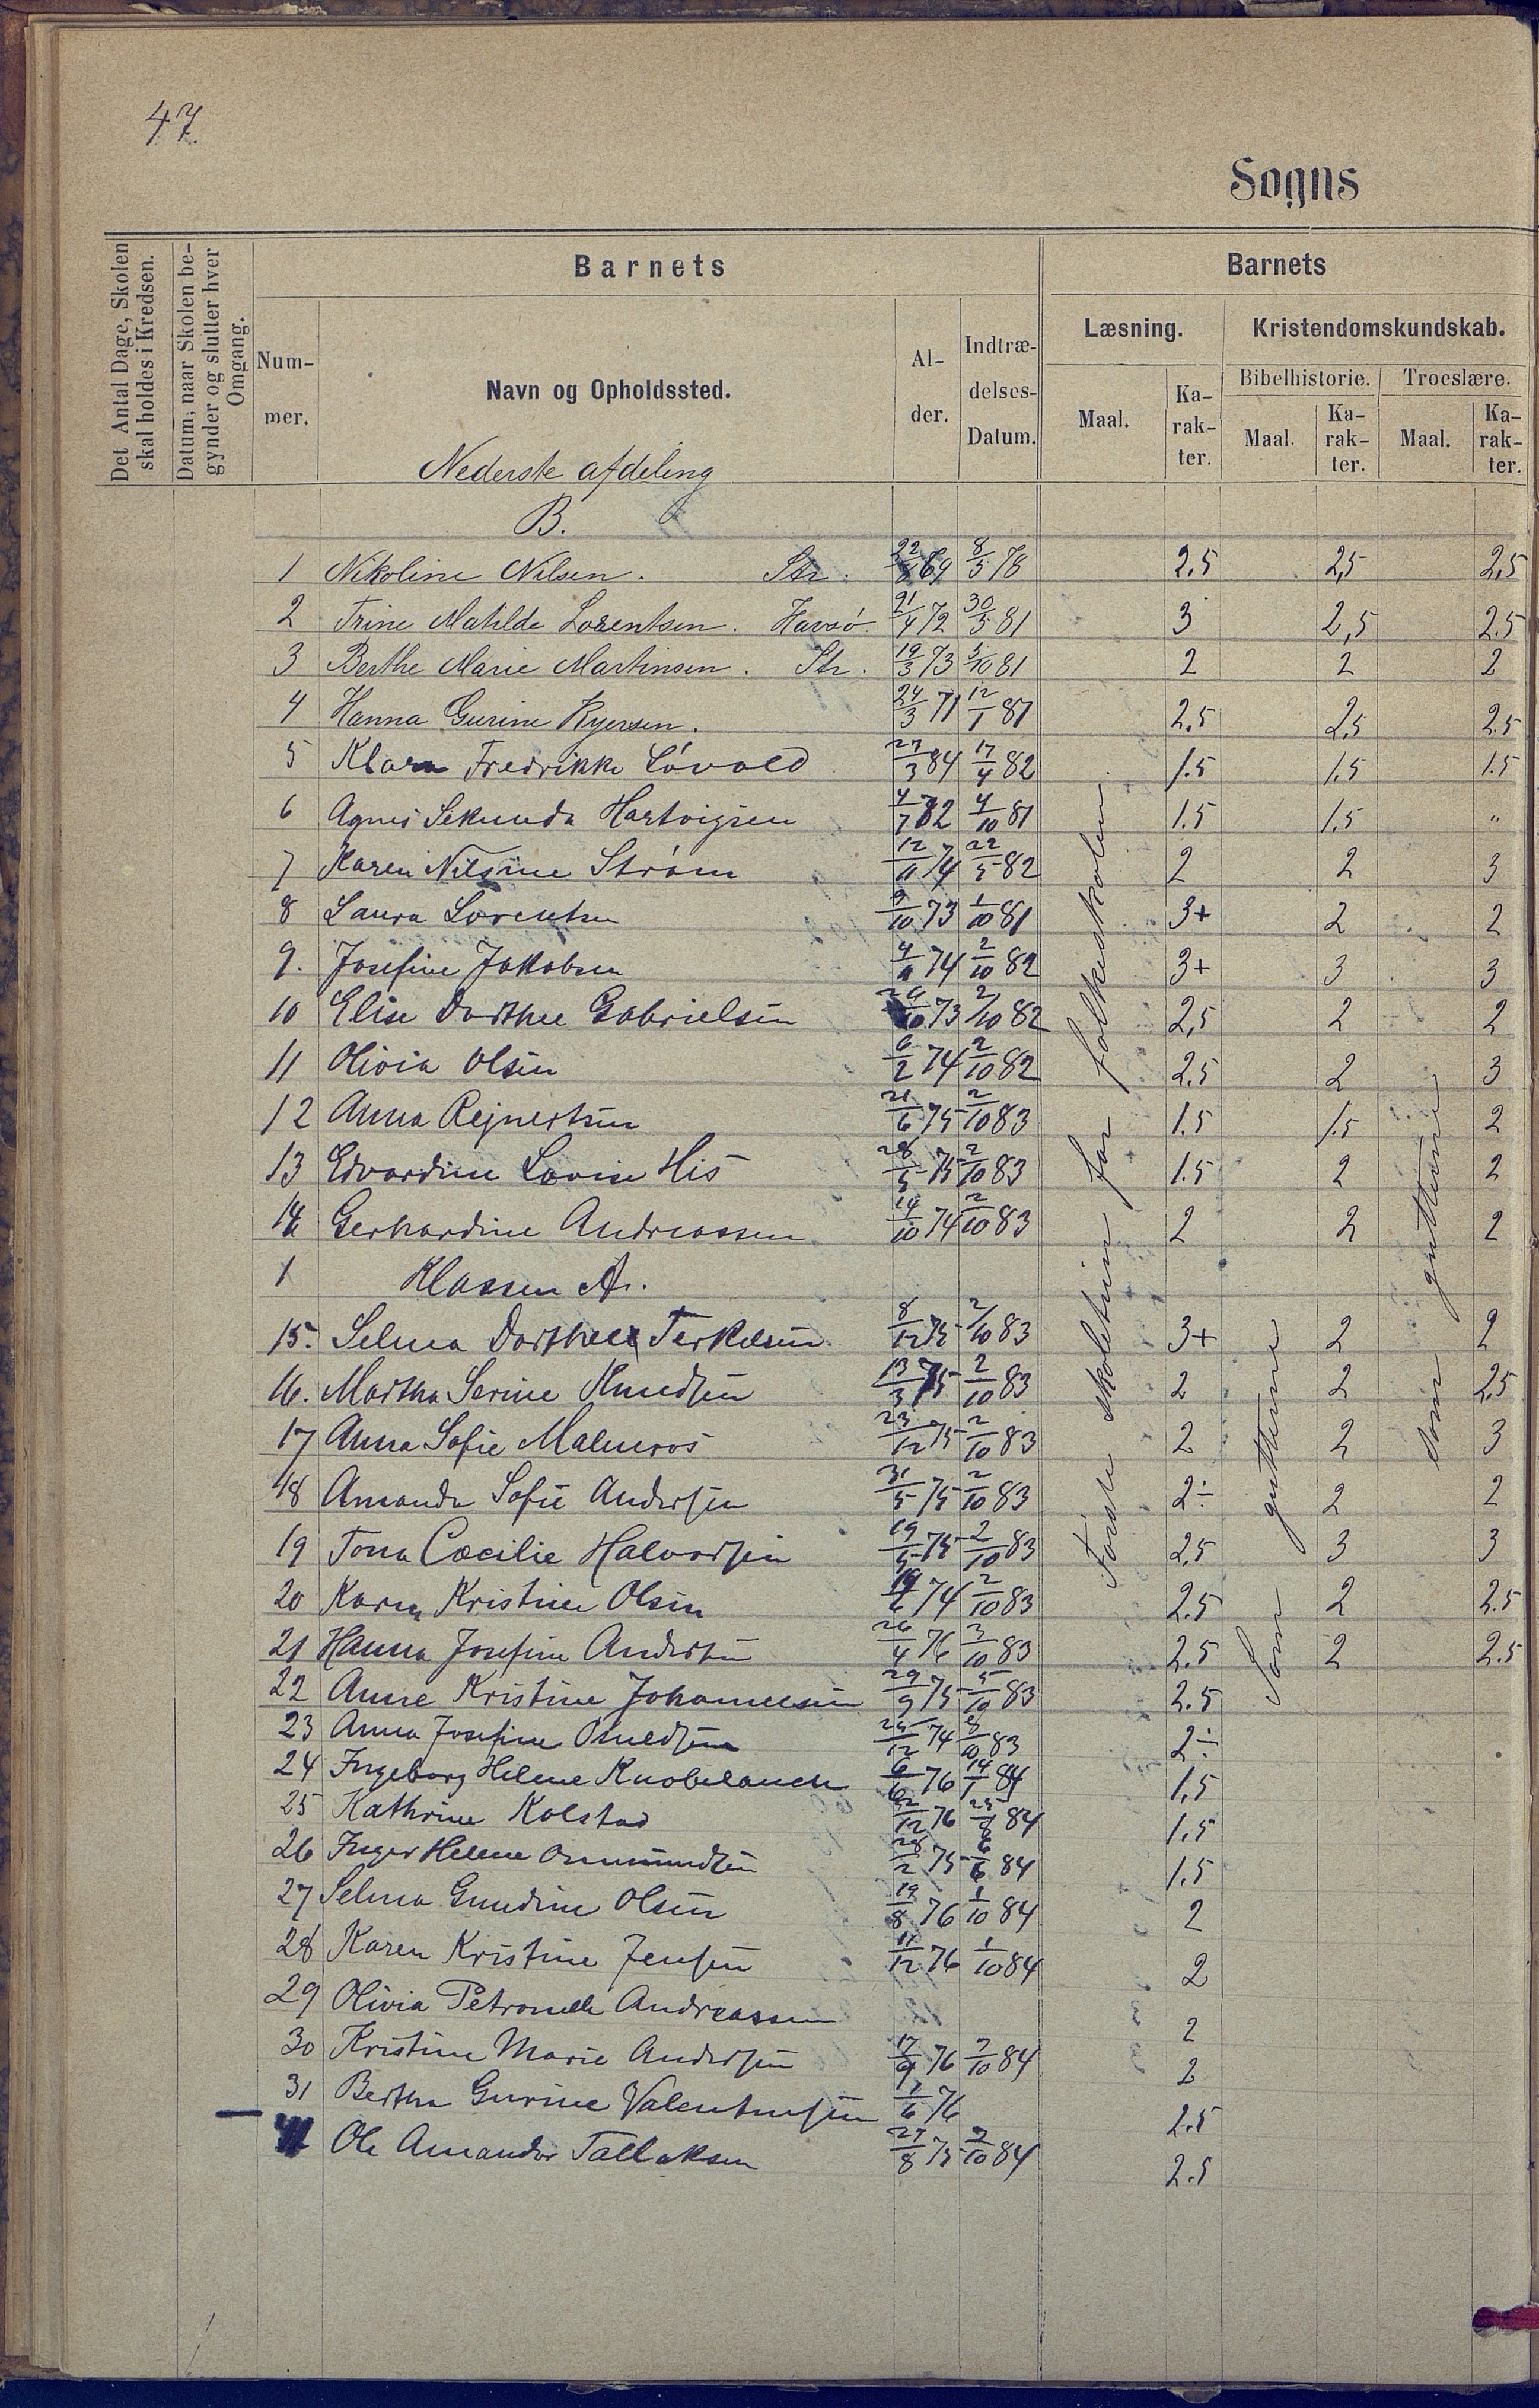 47.
Sogns
Det Antal Dage, Skolen skal holdes i Kredsen.
Datum, naar Skolen begynder og slutter hver Omgang.
Barnets
Barnets
Nummer.
Navn og Opholdssted.
Alder.
Indtrædelses-Datum.
Læsning.
Kristendomskundskab.
Bibelhistorie.
Troeslære.
Maal.
Karakter.
Maal.
Karakter.
Maal.
Karakter.
Nederste afdeling
B.
1 Nikoline Nilsen. Str. 69 8/5 78 2.5 2,5 2,5
2 Trine Matilde Lorentsen. Havsö. 21/4 72 30/5 81 3 2,5 2.5
3 Berthe Marie Martinsen. Str. 19/3 73 5/10 81 2 2 2
4 Hanna Gurine 24/3 71 12/1 81 2.5 2,5 2.5
5 Klara Fredrikke Lövold 27/3 84 17/4 82 1.5 1.5 1.5
6 Agnes Sekunda Hartvigsen 4/7 4/10 81 1.5 1.5 "
7 Karen Nilsine Ström 12/11 74 22/5 82 2 2 3
8 Laura Lorentsen 9/10 73 1/10 81 3+ 2 2
9. Josefine Jakobsen 4/11 74 2/10 82 3+ 3 3
10 Elise Dorthee Gabrielsen 73 2/10 82 2,5 2 2
11 Olivia Olsen 6/2 74 2/10 82 2.5 2 3
12 Anna Rejnertsen 21/6 75 2/10 83 1.5 1.5 2
13 Edvardine Lovise His 28/5 75 2/10 83 1.5 2 2
14 Gerhardine Andreassen 14/10 74 2/10 83 2 2 2
1 Klassen A.
15. Selma Dorthea Terkelsen 8/12 75 2/10 83 3+ 2 2
16. Martha Serine Knudsen 13/3 75 2/10 83 2 2 2.5
17 Anna Sofie Malmros 23/12 75 2/10 83 2 2 3
18 Amanda Sofie Andersen 31/5 75 2/10 83 2÷ 2 2
19 Tona Cæcilie Halvorsen 19/5 75 2/10 83 2.5 3 3
20 Karen Kristine Olsen 74 2/10 83 2.5 2 2.5
21 Hanna Josefine Andersen 26/4 76 3/10 83 2.5 2 2.5
22 Anne Kristine Johannesen 29/9 75 5/10 83 2.5
23 Anna Josefine 25/12 74 8/10 83 2÷
24 Ingeborg Helene Knobelauch 6/6 76 14/1 84 1,5
25 Kathrine Kolstad 76 25/8 84 1.5
26 Inger Helene Ommundsen 28/2 75 6/6 84 1.5
27 Selma Gundine Olsen 19/8 76 1/10 84 2
28 Karen Kristine Jensen 11/12 76 1/10 84 2
29 Olivia Petronelle Andreassen 2
30 Kristine Marie Andersen 17/9 76 7/10 84 2
31 Bertha Gurine Valentinsen 1/6 76 2.5
Ole Amandor Tallaksen 27/8 75 2/10 84 2.5
Förste skoletrin for folkeskolen.
Som guttene
Som guttene